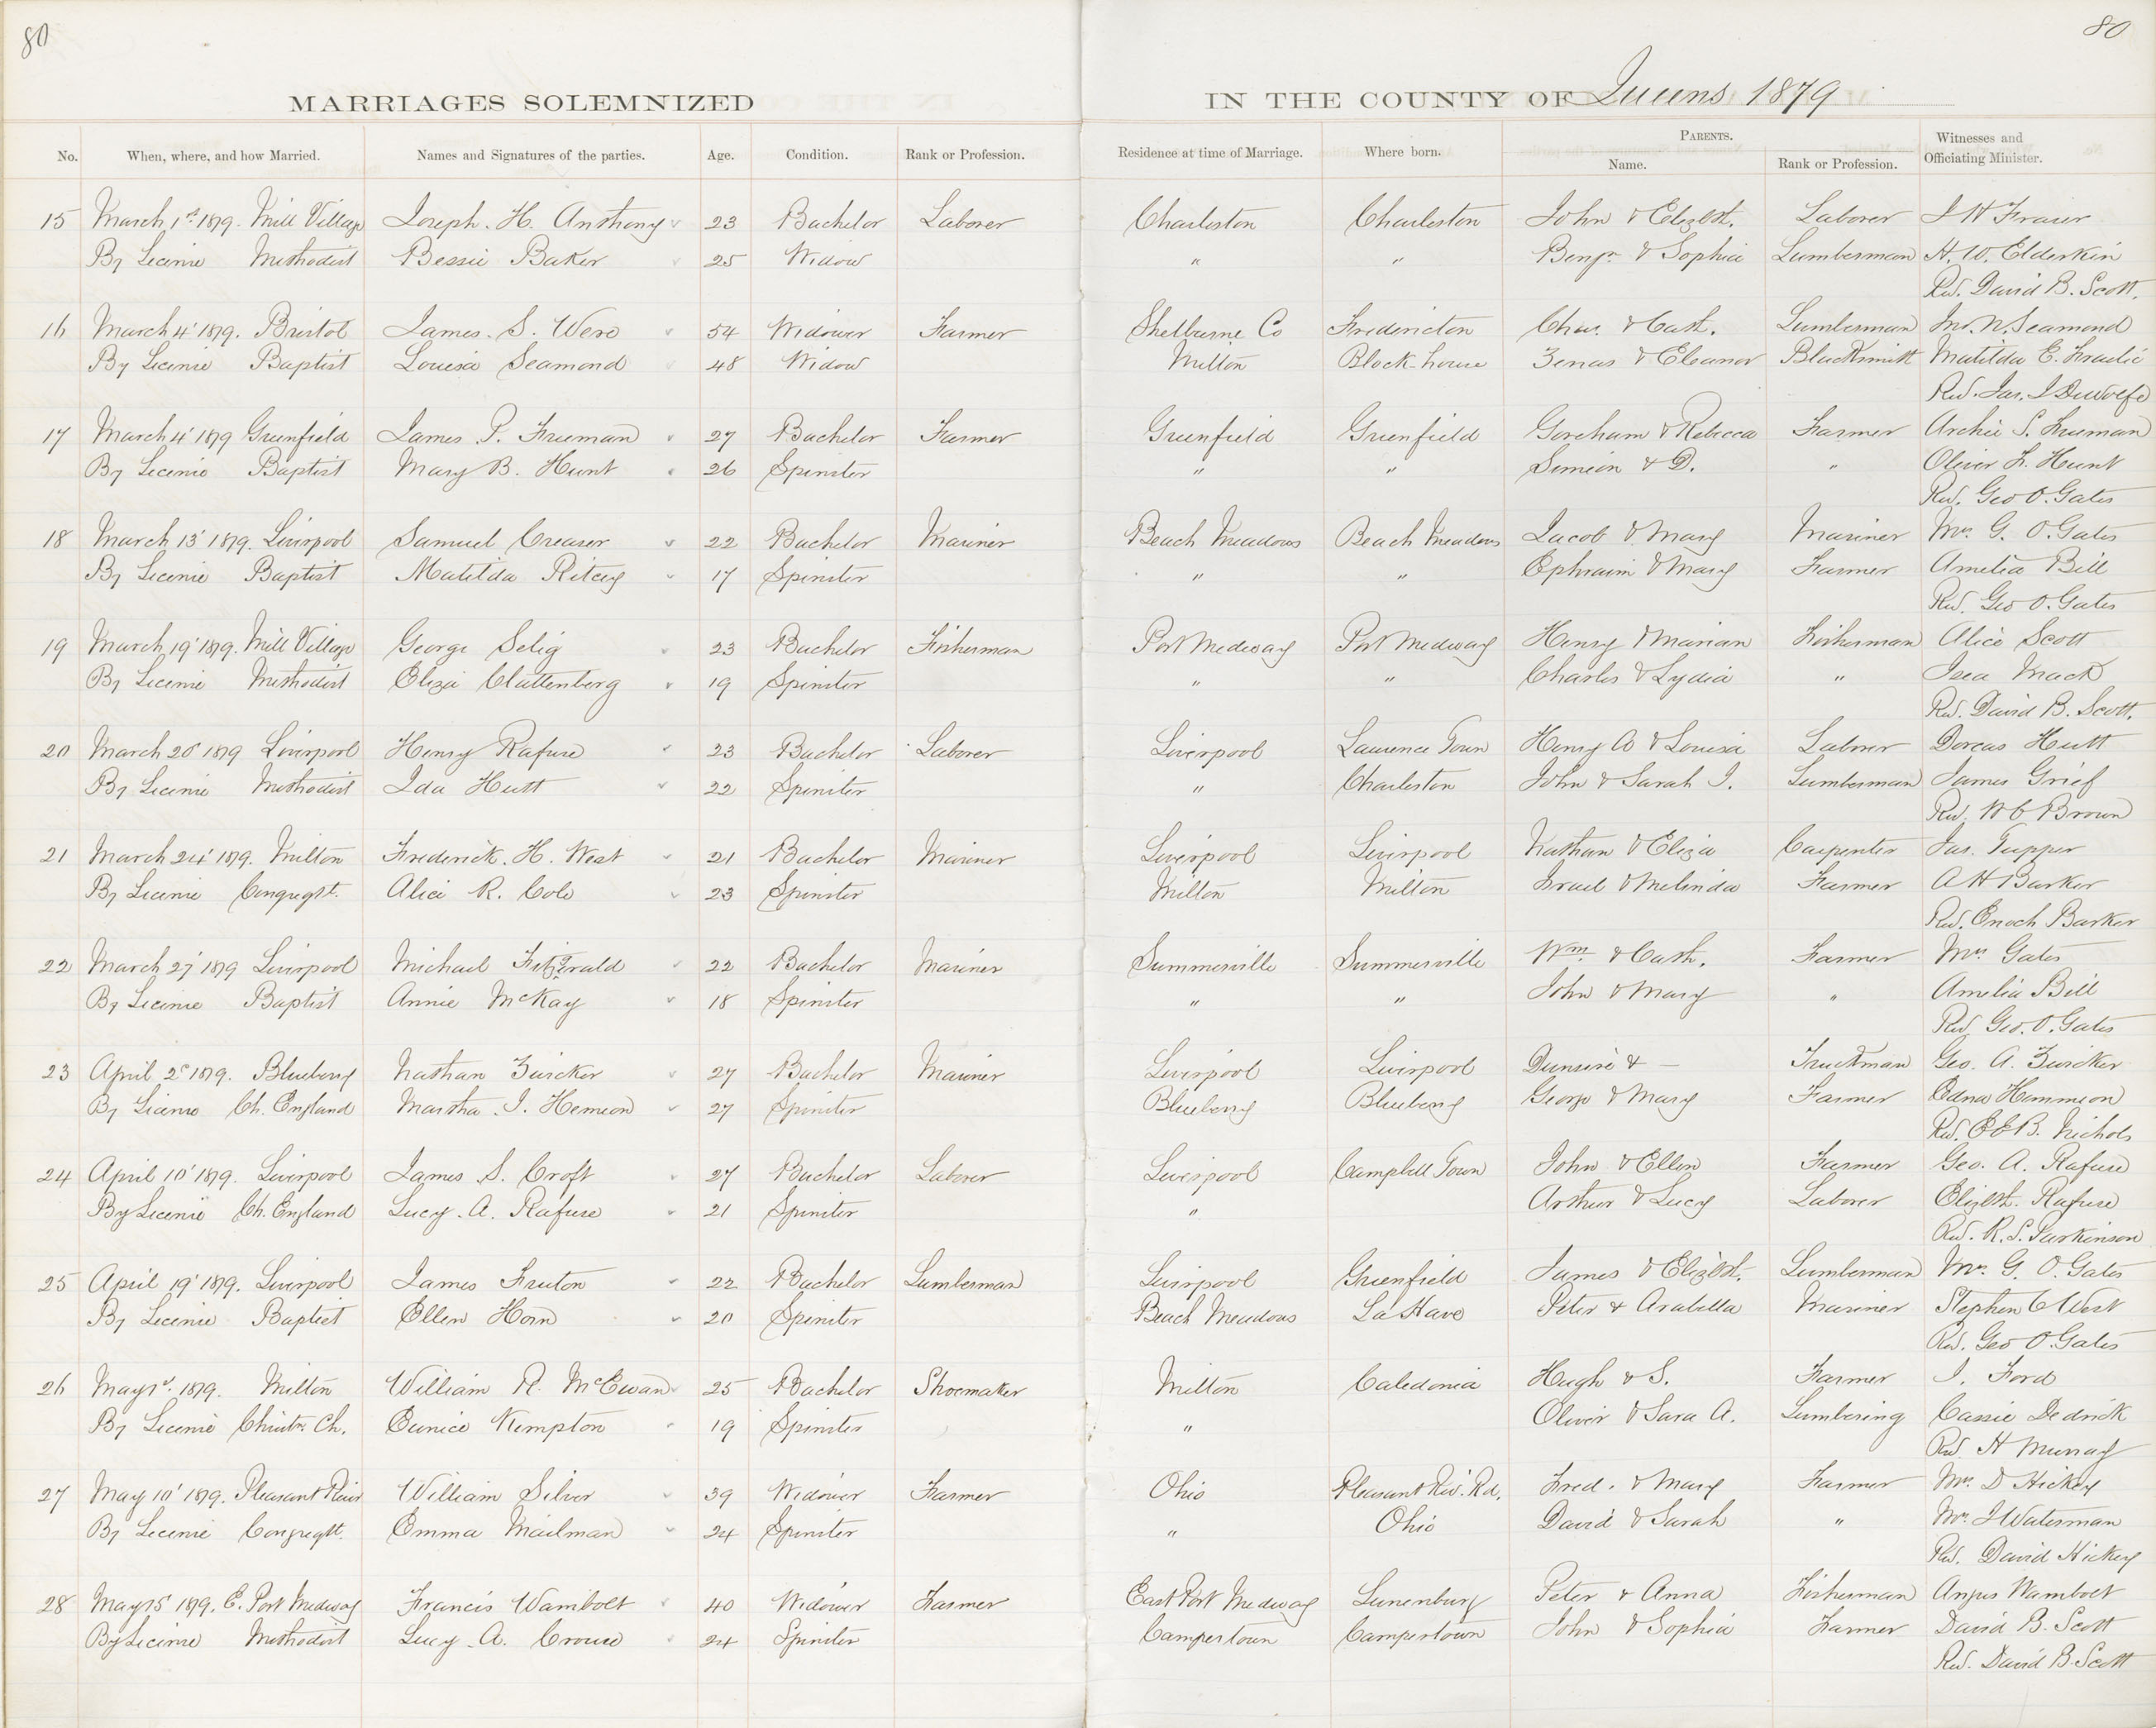 80
80
MARRIAGES SOLEMNIZED IN THE COUNTY OF Queens 1879
No. When, where, and how Married. Names and Signatures of the parties. Age. Condition. Rank or Profession. Residence at time of Marriage. Where born. PARENTS. Name. Rank or Profession. Witnesses and Officiating Minister.
15 March 1st 1879. Mill Village Joseph. H. Anthony 23 Bachelor Laborer Charleston Charleston John & Elizbth. Laborer J H Fraser
By License Methodist Bessie Baker 25 Widow " " Benjn. & Sophia Lumberman H. W. Elderkin
Rev. David B. Scott.
16 March 4' 1879. Bristol James. S. 54 Widower Farmer Shelburne Co Fredericton Chas. & Cath. Lumberman Jno. N. Seamond
By License Baptist Louisa Seamond 48 Widow Milton Block-house Zenas & Eleanor Blacksmith Matilda E.
Rev. Jas. I DeWolfe
17 March 4' 1879 Greenfield James P. Freeman 27 Bachelor Farmer Greenfield Greenfield Goreham & Rebecca Farmer Archie S. Freeman
By License Baptist Mary B. Hunt 26 Spinster " " Simeon & D. " Oliver L. Hunt
Rev. Geo O. Gates
18 March 13' 1879. Liverpool Samuel Creaser 22 Bachelor Mariner Beach Meadows Beach Meadows Jacob & Mary Mariner Mrs. G. O. Gates
By License Baptist Matilda Ritcey 17 Spinster " " Ephraim & Mary Farmer Amelia Bill
Rev. Geo O. Gates
19 March 19' 1879. Mill Village George Selig 23 Bachelor Fisherman Port Medway Port Medway Henry & Marian Fisherman Alice Scott
By License Methodist Eliza Clattenberg 19 Spinster " " Charles & Lydia " Mack
Rev. David B. Scott.
20 March 20' 1879 Liverpool Henry Rafuse 23 Bachelor Laborer Liverpool Laurence Town Henry A & Louisa Laborer Dorcas Hutt
By License Methodist Ida Hutt 22 Spinster " Charleston John & Sarah J. Lumberman James Grief
Rev. W C Brown
21 March 24' 1879. Milton Frederick. H. West 21 Bachelor Mariner Liverpool Liverpool Nathan & Eliza Carpenter Jas. Tupper
By License Congregt. Alice R. Cole 23 Spinster Milton Milton Israel & Melinda Farmer A H Barker
Rev. Enoch Barker
22 March 27' 1879 Liverpool Michael Fitzgerald 22 Bachelor Mariner Summerville Summerville Wm. & Cath. Farmer Mrs Gates
By License Baptist Annie McKay 18 Spinster " " John & Mary " Amelia Bill
Rev. Geo. O. Gates
23 April 2d 1879. Blueberry Nathan Zwicker 27 Bachelor Mariner Liverpool Liverpool & — Truckman Geo. A. Zwicker
By License Ch. England Martha. J. Hemeon 27 Spinster Blueberry Blueberry George & Mary Farmer Edna Hemmeon
Rev. E E B. Nichols
24 April 10' 1879. Liverpool James S. Croft 27 Bachelor Laborer Liverpool Campbell Town John & Ellen Farmer Geo. A. Rafuse
By License Ch. England Lucy. A. Rafuse 21 Spinster " Arthur & Lucy Laborer Elizbth. Rafuse
Rev. R. S. Parkinson
25 April 19' 1879. Liverpool James Freeton 22 Bachelor Lumberman Liverpool Greenfield James & Elizbth. Lumberman Mrs. G. O. Gates
By License Baptist Ellen Horn 20 Spinster Beach Meadows La Have Peter & Arabella Mariner Stephen C West
Rev. Geo O. Gates
26 May 1st. 1879. Milton William R. McEwan 25 Bachelor Shoemaker Milton Caledonia Hugh & S. Farmer J. Ford
By License Christn. Ch. Eunice Kempton 19 Spinster " Oliver & Sara A. Lumbering Cassie Dedrick
Rev. H Murray
27 May 10' 1879. Pleasant River William Silver 39 Widower Farmer Ohio Pleasant Riv. Rd. Fred. & Mary Farmer Mrs. D Hickey
By License Congregt. Emma Mailman 24 Spinster " Ohio David & Sarah " Mr. J Waterman
Rev. David Hickey
28 May 15' 1879. E. Port Medway Francis Wambolt 40 Widower Farmer East Port Medway Lunenburg Peter & Anna Fisherman Angus Wambolt
By License Methodist Lucy. A. Crouse 24 Spinster Campertown Campertown John & Sophia Farmer David B. Scott
Rev. David B. Scott